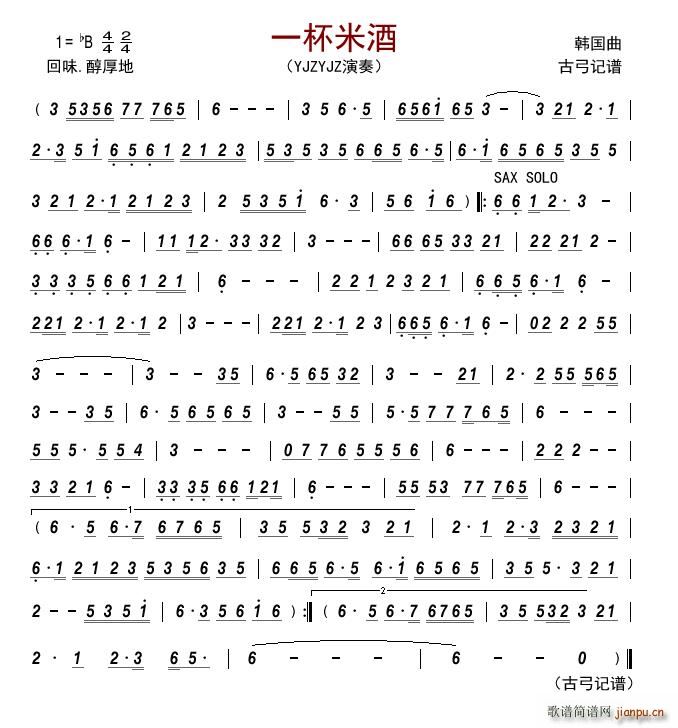 1= ♭B 4/4 2/4 一杯米酒 韩国曲
回味.醇厚地 (YJZYJZ演奏) 古弓记谱
( 3 5356 77 765 | 6 - - - | 3 5 6·5 | 6561 65 3 - | 3 21 2·1 |
2·3 51 6561 2123 | 535356656 5 | 6·1 6565355 |
SAX SOLO
3 21 2·1 2123 | 2 5351 6·3 | 56 16 ) |: 6612·3 - |
666·16 - | 1112·3332 | 3 - - - | 66653321 | 22212 - |
333566121 | 6 - - - | 2212321 | 6656·16 - |
2212·12·12 | 3 - - - | 2212·123 | 6656·16 - | 022255 |
3 - - - | 3 - - 35 | 6·56532 | 3 - - 21 | 2·255565 |
3 - - 35 | 6·56565 | 3 - - 55 | 5·577765 | 6 - - - |
555·554 | 3 - - - | 07765556 | 6 - - - | 222 - - |
33216· | 333566121 | 6 - - - | 555377765 | 6 - - - |
1
( 6·56·76765 | 35532321 | 2·12·32321 |
6·12123535635 | 6656·56·1 | 65653512·3 |
2
2 - - 5351 | 6·35616 ) :| ( 6·56·76765 | 35532321 |
2·12·365· | 6 - - - | 6 - - 0 ) |
(古弓记谱)
歌谱简谱网
jianpu.cn